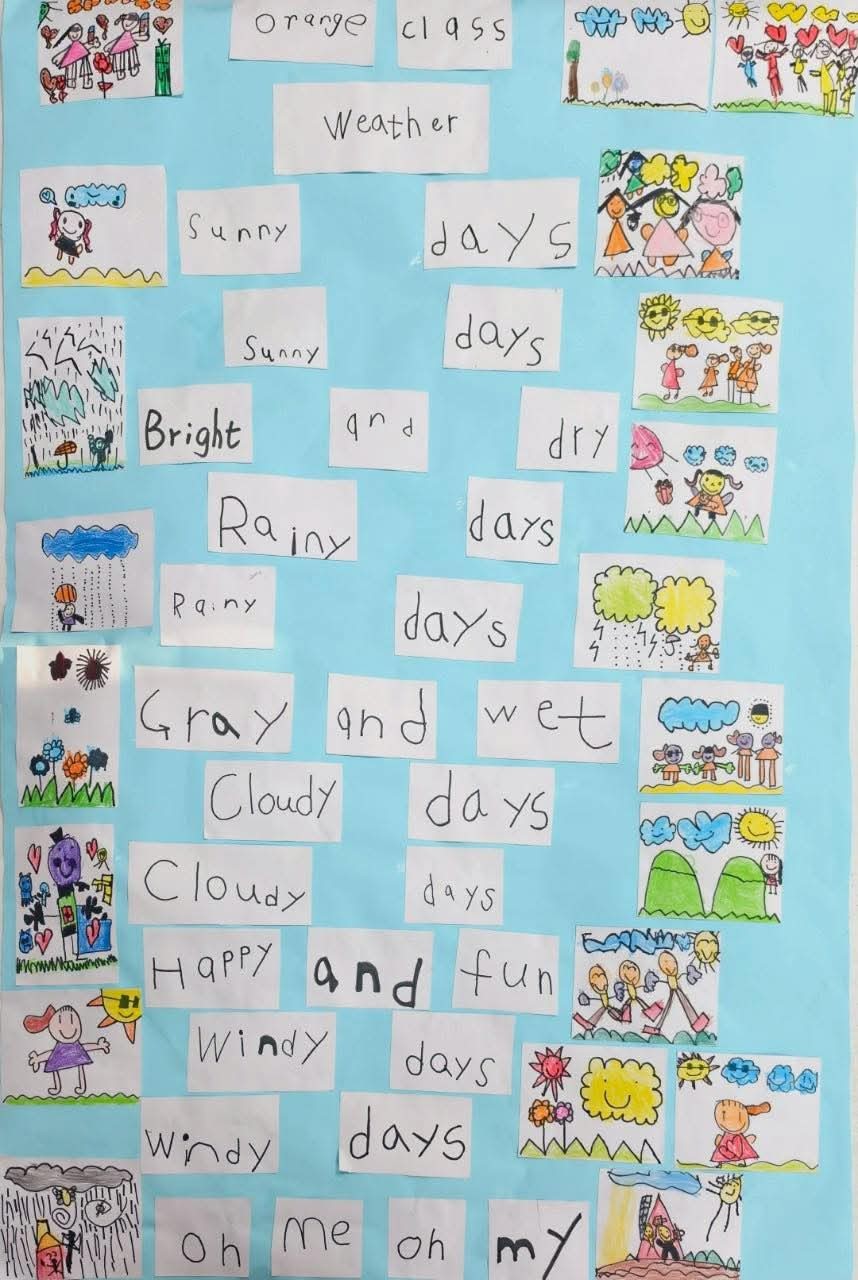 orange class
Weather
Sunny days
Sunny days
Bright and dry
Rainy days
Rainy days
Gray and wet
Cloudy days
Cloudy days
Happy and fun
Windy days
Windy days
oh me oh my